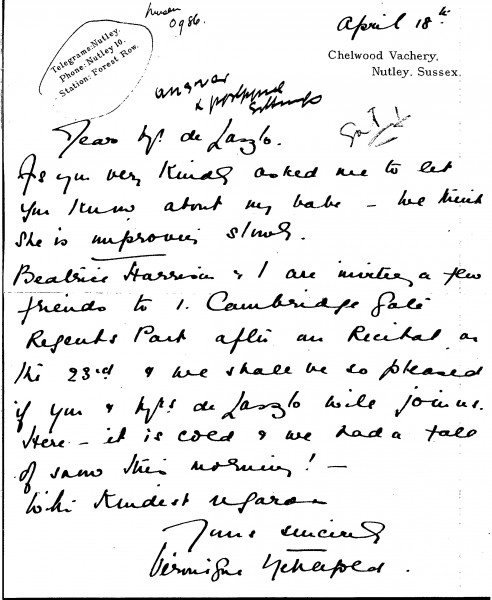 0986.
April 18th
Telegrams: Nutley.
Phone: Nutley 10.
Station: Forest Row.
Chelwood Vachery,
Nutley. Sussex.
answer
& postponed Sittings
Dear Mr. de Laszlo.
As you very kindly asked me to let
you know about my babe – we think
she is improving slowly.
Beatrice Harrison & I are inviting a few
friends to 1. Cambridge Gate
Regents Park after our Recital on
the 23rd & we shall be so pleased
if you & Mrs de Laszlo will join us.
Here – it is cold & we had a fall
of snow this morning! –
With kindest regards
Yours sincerely
Véronique